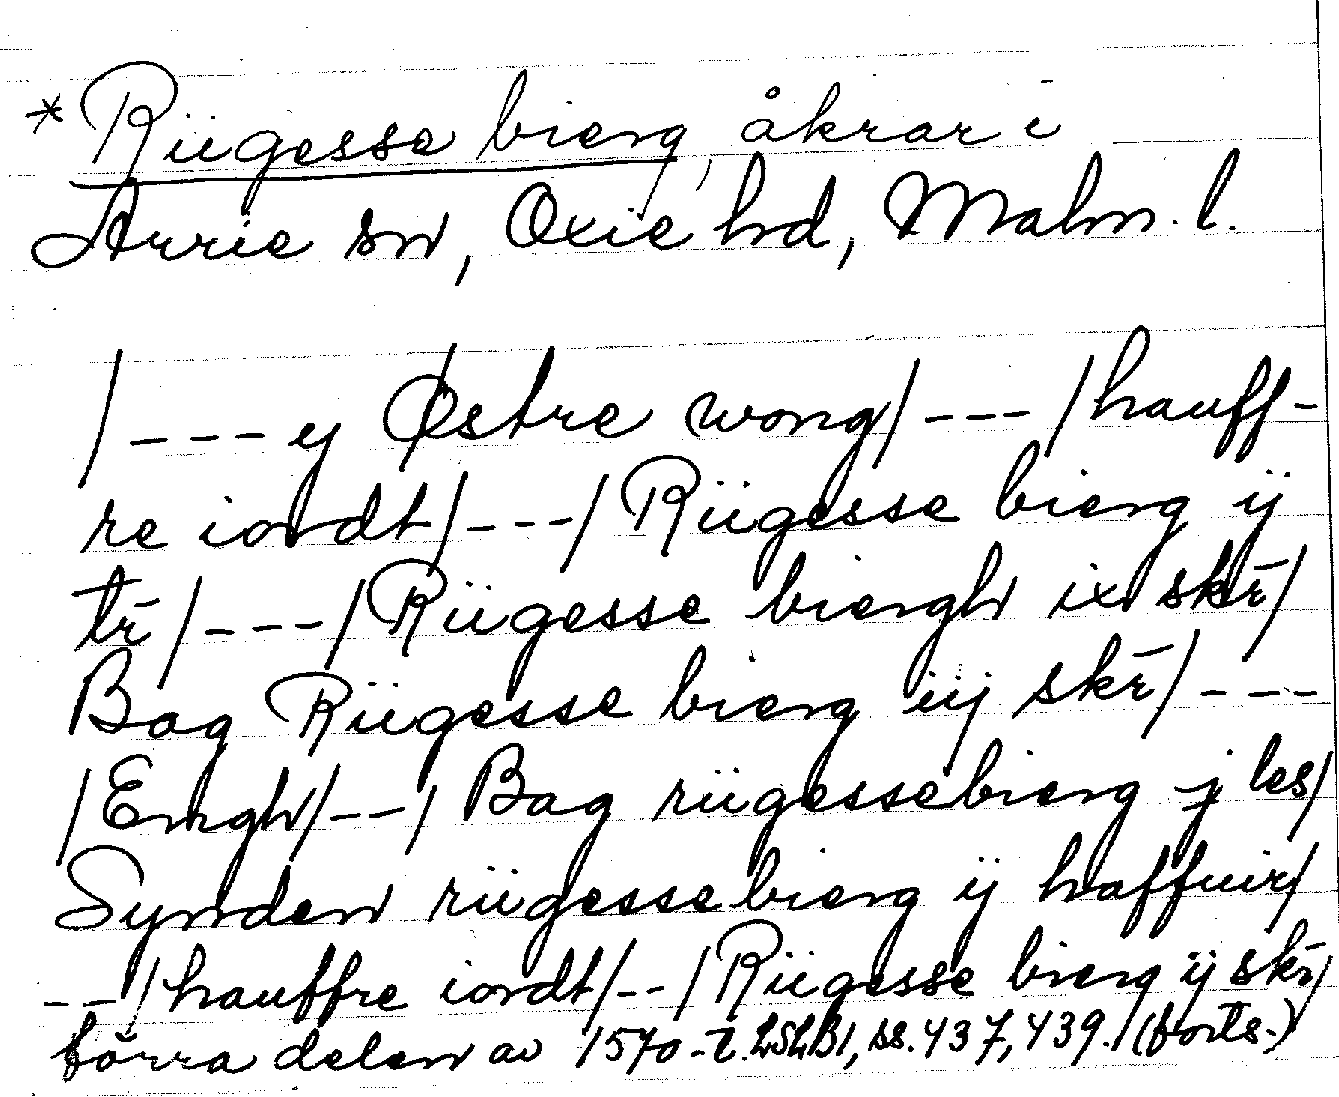 * Riigesse bierg, åkrar i
Arrie sn, Oxie hd, Malm. l.
/---y Østre wong/---/hauff-
re iordt/---/Riigesse bierg ij
tr̄/---/Riigesse biergh ix skr̄/
Bag Riigesse bierg iij skr̄/---
/Engh/--/Bag riigessebierg j les/
Synden riigessebierg ij haffuir/
--/hauffre iordt/--/Riigesse bierg ij skr̄/
förra delen av 1570-t. LSLB1, ss. 437, 439. (forts.)